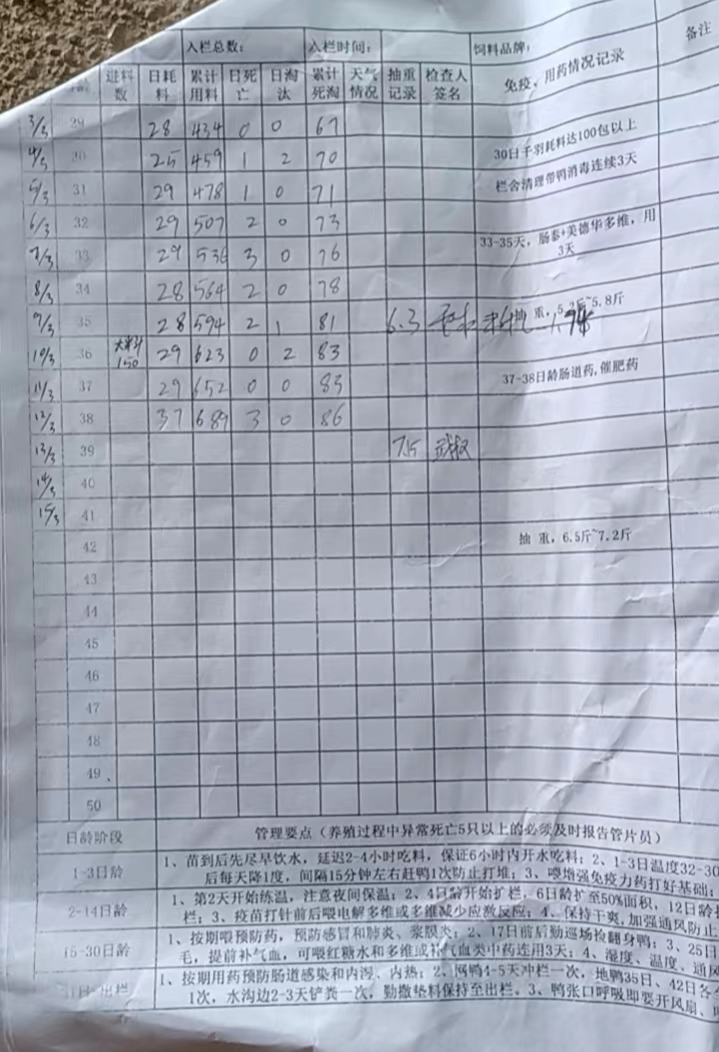 入栏总数： 入栏时间： 饲料品牌：
进料数 日耗料 累计用料 日死亡 日淘汰 累计死淘 天气情况 抽重记录 检查人签名 免疫、用药情况记录 备注
3/3 29 28 434 0 0 67
4/3 30 25 459 1 2 70 30日千羽耗料达100包以上
5/3 31 29 478 1 0 71 栏舍清理带鸭消毒连续3天
6/3 32 29 507 2 0 73
7/3 33 29 536 3 0 76 33-35天，肠泰+美德华多维，用3天
8/3 34 28 564 2 0 78
9/3 35 28 594 2 1 81 6.3 重，5.2斤~5.8斤
10/3 36 150 29 623 0 2 83
11/3 37 29 652 0 0 83 37-38日龄肠道药，催肥药
12/3 38 37 689 3 0 86
13/3 39 7.15
14/3 40
15/3 41
42 抽 重，6.5斤~7.2斤
43
44
45
46
47
48
49
50
日龄阶段 管理要点（养殖过程中异常死亡5只以上的必须及时报告管片员）
1-3日龄 1、苗到后先尽早饮水，延迟2-4小时吃料，保证6小时内开水吃料；2、1-3日温度32-30
后每天降1度，间隔15分钟左右赶鸭1次防止打堆；3、喂增强免疫力药打好基础；
2-14日龄 1、第2天开始练温，注意夜间保温；2、4日龄开始扩栏，6日龄扩至50%面积，12日龄
栏；3、疫苗打针前后喂电解多维或多维减少应激反应；4、保持干爽，加强通风防止
15-30日龄 1、按期喂预防药，预防感冒和肺炎、浆膜炎；2、17日前后勤巡场捡翻身鸭；3、25日
毛，提前补气血，可喂红糖水和多维或补气血类中药连用3天；4、湿度、温度、通风
31日-出栏 1、按期用药预防肠道感染和内泻、内热；2、网鸭4-5天冲栏一次，地鸭35日、42日各
1次，水沟边2-3天铲粪一次，勤撒垫料保持至出栏。3、鸭张口呼吸即要开风扇、